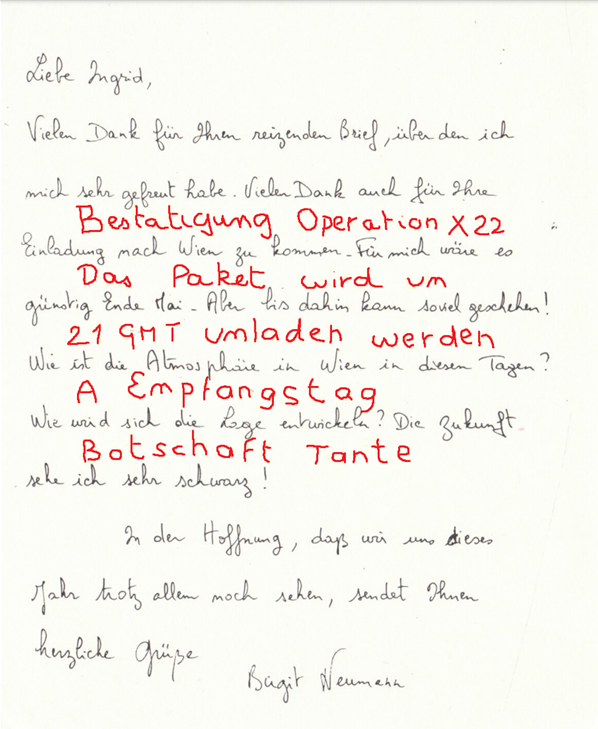 Liebe Ingrid,
Vielen Dank für Ihren reizenden Brief, über den ich
mich sehr gefreut habe. Vielen Dank auch für Ihre
Bestatigung Operation X22
Einladung nach Wien zu kommen. Für mich wäre es
Das Paket wird um
günstig Ende Mai. Aber bis dahin kann soviel geschehen!
21 GMT umladen werden
Wie ist die Atmosphäre in Wien in diesen Tagen?
A Empfangstag
Wie wird sich die Lage entwickeln? Die Zukunft
Botschaft Tante
sehe ich sehr schwarz!
In der Hoffnung, daß wir uns dieses
Jahr trotz allem noch sehen, sendet Ihnen
herzliche Grüße
Birgit Neumann